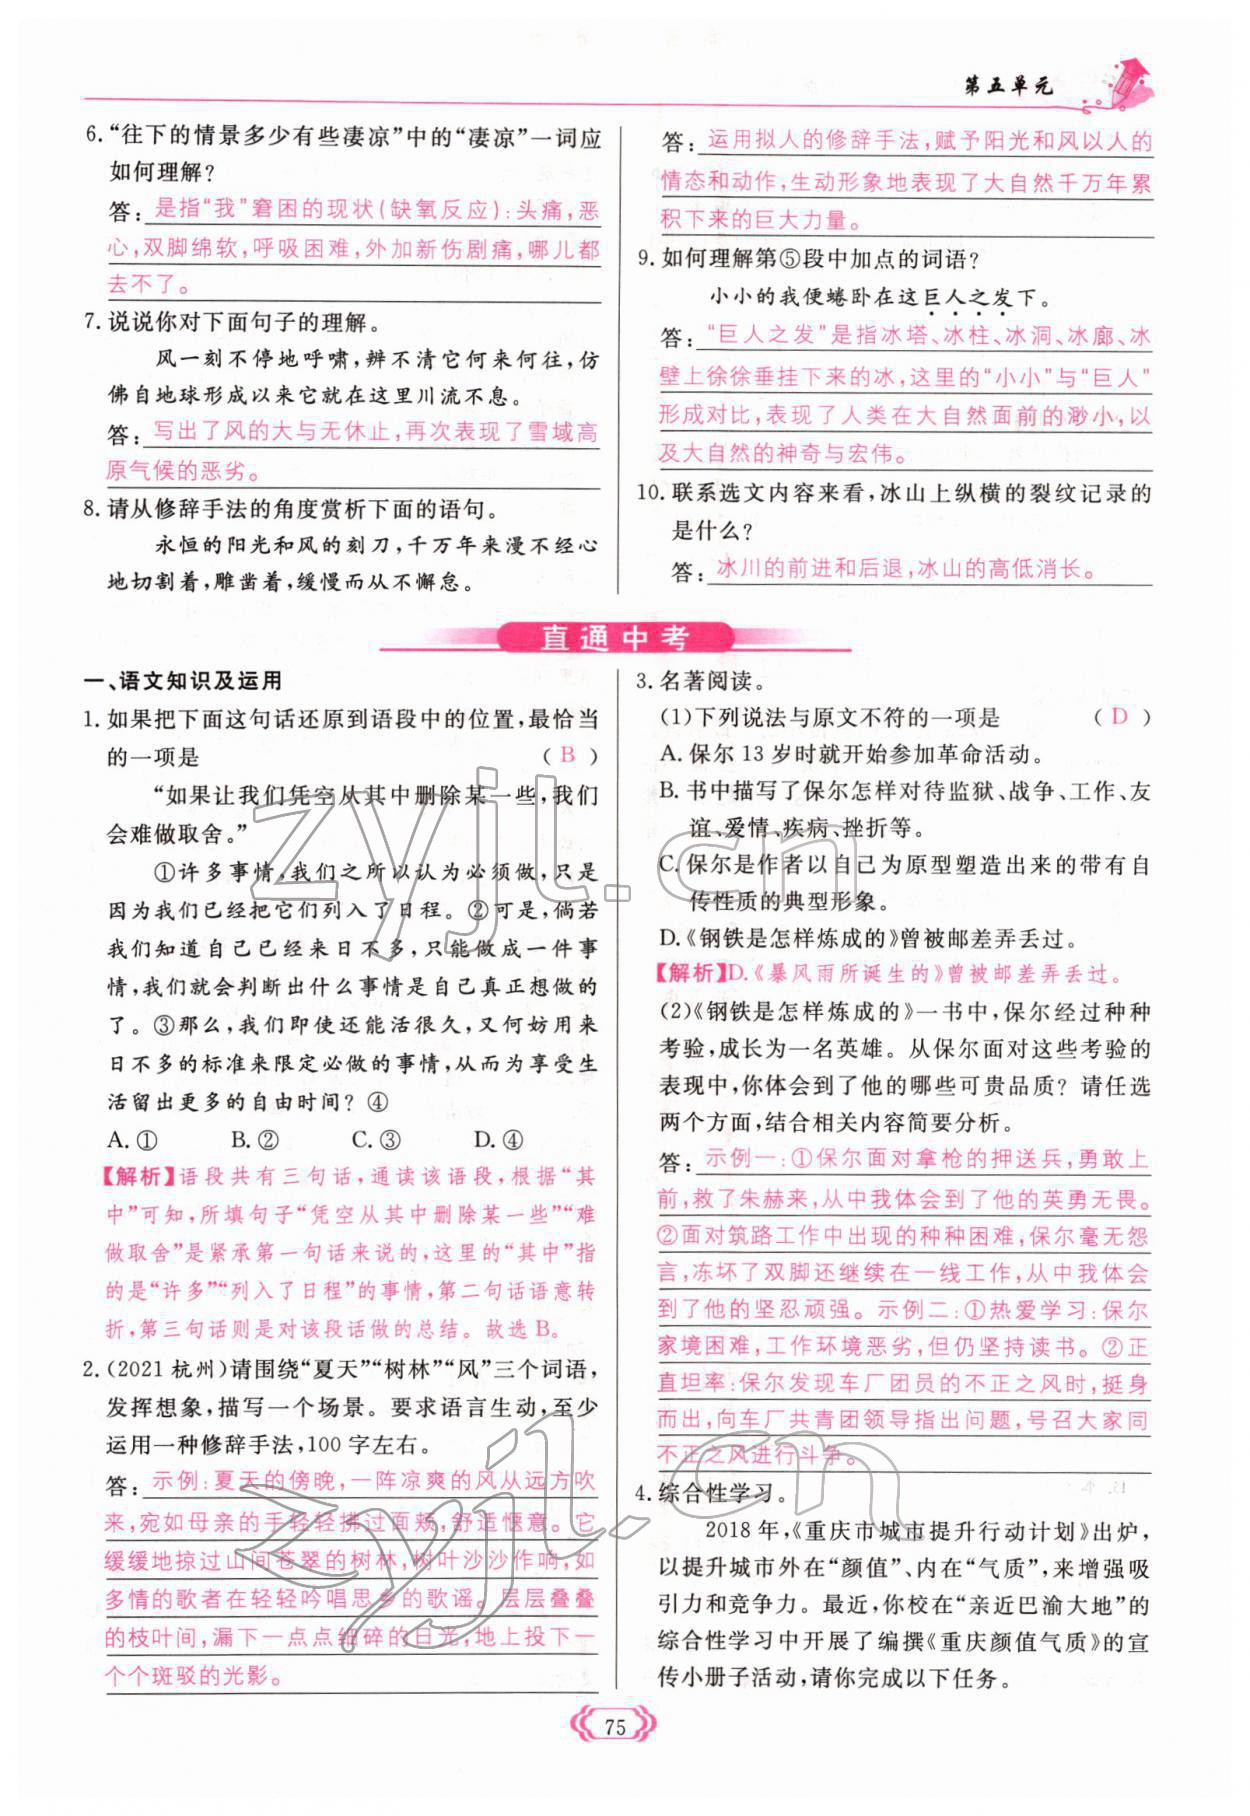 第五单元
6.“往下的情景多少有些凄凉”中的“凄凉”一词应
如何理解?
答:是指“我”窘困的现状(缺氧反应):头痛,恶
心,双脚绵软,呼吸困难,外加新伤剧痛,哪儿都
去不了。
7.说说你对下面句子的理解。
风一刻不停地呼啸,辨不清它何来何往,仿
佛自地球形成以来它就在这里川流不息。
答:写出了风的大与无休止,再次表现了雪域高
原气候的恶劣。
8.请从修辞手法的角度赏析下面的语句。
永恒的阳光和风的刻刀,千万年来漫不经心
地切割着,雕凿着,缓慢而从不懈怠。
答:运用拟人的修辞手法,赋予阳光和风以人的
情态和动作,生动形象地表现了大自然千万年累
积下来的巨大力量。
9.如何理解第⑤段中加点的词语?
小小的我便蜷卧在这巨人之发下。
答:“巨人之发”是指冰塔、冰柱、冰洞、冰廊、冰
壁上徐徐垂挂下来的冰,这里的“小小”与“巨人”
形成对比,表现了人类在大自然面前的渺小,以
及大自然的神奇与宏伟。
10.联系选文内容来看,冰山上纵横的裂纹记录的
是什么?
答:冰川的前进和后退,冰山的高低消长。
直通中考
一、语文知识及运用
1.如果把下面这句话还原到语段中的位置,最恰当
的一项是 (B)
“如果让我们凭空从其中删除某一些,我们
会难做取舍。”
①许多事情,我们之所以认为必须做,只是
因为我们已经把它们列入了日程。②可是,倘若
我们知道自己已经来日不多,只能做成一件事
情,我们就会判断出什么事情是自己真正想做的
了。③那么,我们即使还能活很久,又何妨用来
日不多的标准来限定必做的事情,从而为享受生
活留出更多的自由时间?④
A.① B.② C.③ D.④
【解析】语段共有三句话,通读该语段,根据“其
中”可知,所填句子“凭空从其中删除某一些”“难
做取舍”是紧承第一句话来说的,这里的“其中”指
的是“许多”“列入了日程”的事情,第二句话语意转
折,第三句话则是对该段话做的总结。故选B。
2.(2021杭州)请围绕“夏天”“树林”“风”三个词语,
发挥想象,描写一个场景。要求语言生动,至少
运用一种修辞手法,100字左右。
答:示例:夏天的傍晚,一阵凉爽的风从远方吹
来,宛如母亲的手轻轻拂过面颊,舒适惬意。它
缓缓地掠过山间苍翠的树林,树叶沙沙作响,如
多情的歌者在轻轻吟唱思乡的歌谣。层层叠叠
的枝叶间,漏下一点点细碎的日光,地上投下一
个个斑驳的光影。
3.名著阅读。
(1)下列说法与原文不符的一项是 (D)
A.保尔13岁时就开始参加革命活动。
B.书中描写了保尔怎样对待监狱、战争、工作、友
谊、爱情、疾病、挫折等。
C.保尔是作者以自己为原型塑造出来的带有自
传性质的典型形象。
D.《钢铁是怎样炼成的》曾被邮差弄丢过。
【解析】D.《暴风雨所诞生的》曾被邮差弄丢过。
(2)《钢铁是怎样炼成的》一书中,保尔经过种种
考验,成长为一名英雄。从保尔面对这些考验的
表现中,你体会到了他的哪些可贵品质?请任选
两个方面,结合相关内容简要分析。
答:示例一:①保尔面对拿枪的押送兵,勇敢上
前,救了朱赫来,从中我体会到了他的英勇无畏。
②面对筑路工作中出现的种种困难,保尔毫无怨
言,冻坏了双脚还继续在一线工作,从中我体会
到了他的坚忍顽强。示例二:①热爱学习:保尔
家境困难,工作环境恶劣,但仍坚持读书。②正
直坦率:保尔发现车厂团员的不正之风时,挺身
而出,向车厂共青团领导指出问题,号召大家同
不正之风进行斗争。
4.综合性学习。
2018年,《重庆市城市提升行动计划》出炉,
以提升城市外在“颜值”、内在“气质”,来增强吸
引力和竞争力。最近,你校在“亲近巴渝大地”的
综合性学习中开展了编撰《重庆颜值气质》的宣
传小册子活动,请你完成以下任务。
75
zyjl.cn
zyjl.cn